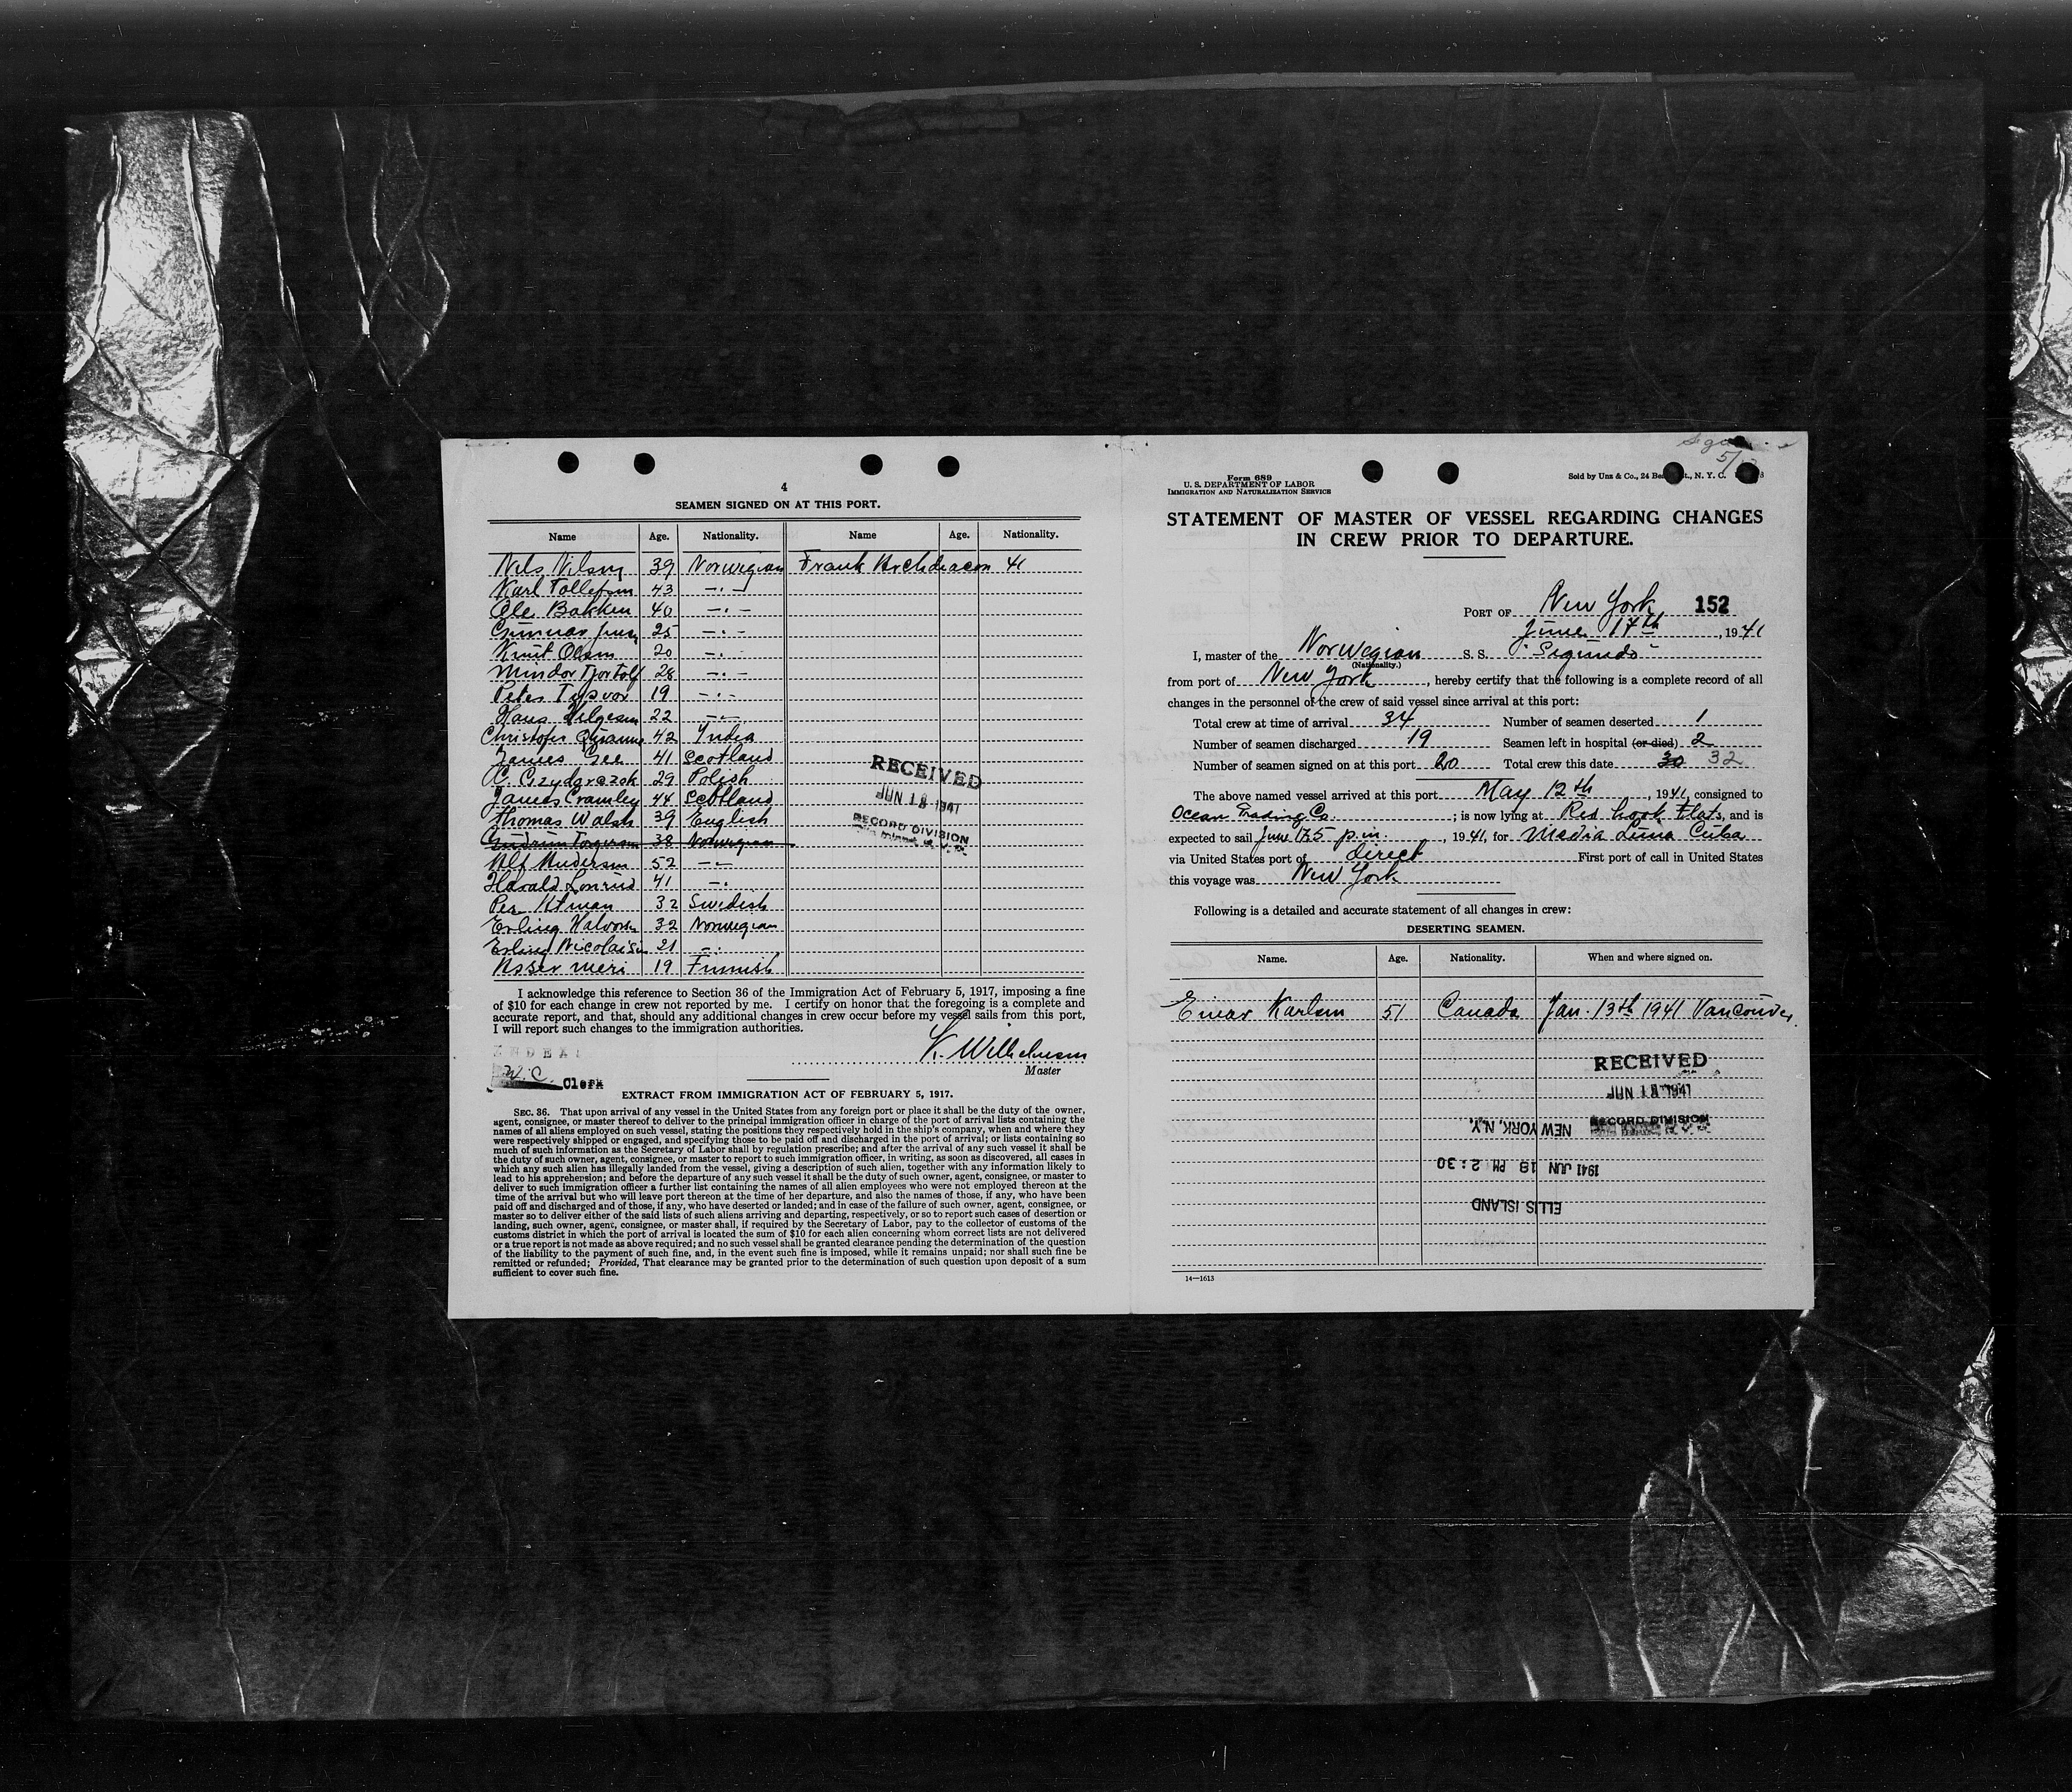 4
SEAMEN SIGNED ON AT THIS PORT.
Name Age. Nationality. Name Age. Nationality.
Nils Nilsen 39 Norwegian Frank Archdeacon 41
Karl Tollefsen 43 —·—
Ole Bakken 40 —·—
Gunnar 25 —·—
Knut Olsen 20 —·—
28 —·—
Peter 19 —·—
Hans 22 —·—
Christofer 42 India
James Gee 41 Scotland
29 Polish
James Cramley 44 Scotland
Thomas Walsh 39 English
38 Norwegian
Alf Andersen 52 —·—
Harald 41 —·
Per 32 Swedish
Erling Halvorsen 32 Norwegian
Erling Nicolaisen 21 —·
Asser Meri 19 Finnish
RECEIVED
JUN 18 1941
RECORD DIVISION
I acknowledge this reference to Section 36 of the Immigration Act of February 5, 1917, imposing a fine
of $10 for each change in crew not reported by me. I certify on honor that the foregoing is a complete and
accurate report, and that, should any additional changes in crew occur before my vessel sails from this port,
I will report such changes to the immigration authorities.
K. Wilhelmsen
Master
W. C. Clerk
EXTRACT FROM IMMIGRATION ACT OF FEBRUARY 5, 1917.
SEC. 36. That upon arrival of any vessel in the United States from any foreign port or place it shall be the duty of the owner,
agent, consignee, or master thereof to deliver to the principal immigration officer in charge of the port of arrival lists containing the
names of all aliens employed on such vessel, stating the positions they respectively hold in the ship's company, when and where they
were respectively shipped or engaged, and specifying those to be paid off and discharged in the port of arrival; or lists containing so
much of such information as the Secretary of Labor shall by regulation prescribe; and after the arrival of any such vessel it shall be
the duty of such owner, agent, consignee, or master to report to such immigration officer, in writing, as soon as discovered, all cases in
which any such alien has illegally landed from the vessel, giving a description of such alien, together with any information likely to
lead to his apprehension; and before the departure of any such vessel it shall be the duty of such owner, agent, consignee, or master to
deliver to such immigration officer a further list containing the names of all alien employees who were not employed thereon at the
time of the arrival but who will leave port thereon at the time of her departure, and also the names of those, if any, who have been
paid off and discharged and of those, if any, who have deserted or landed; and in case of the failure of such owner, agent, consignee, or
master so to deliver either of the said lists of such aliens arriving and departing, respectively, or so to report such cases of desertion or
landing, such owner, agent, consignee, or master shall, if required by the Secretary of Labor, pay to the collector of customs of the
customs district in which the port of arrival is located the sum of $10 for each alien concerning whom correct lists are not delivered
or a true report is not made as above required; and no such vessel shall be granted clearance pending the determination of the question
of the liability to the payment of such fine, and, in the event such fine is imposed, while it remains unpaid; nor shall such fine be
remitted or refunded; Provided, That clearance may be granted prior to the determination of such question upon deposit of a sum
sufficient to cover such fine.
Form 689
U. S. DEPARTMENT OF LABOR
IMMIGRATION AND NATURALIZATION SERVICE
Sold by Unz & Co., 24 N. Y. C.
STATEMENT OF MASTER OF VESSEL REGARDING CHANGES
IN CREW PRIOR TO DEPARTURE.
PORT OF New York 152
June 17th, 1941
I, master of the Norwegian S. S. "Segundo"
(Nationality.)
from port of New York, hereby certify that the following is a complete record of all
changes in the personnel of the crew of said vessel since arrival at this port:
Total crew at time of arrival 34 Number of seamen deserted 1
Number of seamen discharged 19 Seamen left in hospital (or died) 2
Number of seamen signed on at this port 20 Total crew this date 30 32
The above named vessel arrived at this port May 12th, 1941, consigned to
Ocean Trading Co. ; is now lying at Red Hook Flats, and is
expected to sail June 17. 5 p.m., 1941, for Media Luna Cuba
via United States port of direct First port of call in United States
this voyage was New York
Following is a detailed and accurate statement of all changes in crew:
DESERTING SEAMEN.
Name. Age. Nationality. When and where signed on.
Einar Karlsen 51 Canada Jan. 13th 1941 Vancouver.
RECEIVED
JUN 18 1941
RECORD DIVISION
NEW YORK, N.Y.
1941 JUN 18 PM 2:30
ELLIS ISLAND
14—1613